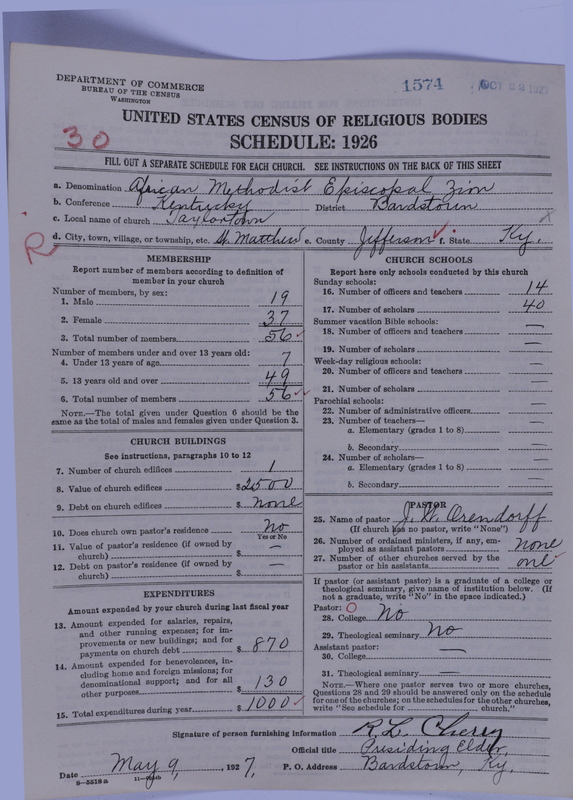 1574 OCT 22 1927
DEPARTMENT OF COMMERCE
BUREAU OF THE CENSUS
WASHINGTON
UNITED STATES CENSUS OF RELIGIOUS BODIES
30
SCHEDULE: 1926
FILL OUT A SEPARATE SCHEDULE FOR EACH CHURCH. SEE INSTRUCTIONS ON THE BACK OF THIS SHEET
a. Denomination African Methodist Episcopal Zion
b. Conference Kentucky District Bardstown
c. Local name of church Taylortown
d. City, town, village, or township, etc. St. Matthews e. County Jefferson f. State Ky.
R
MEMBERSHIP
Report number of members according to definition of
member in your church
Number of members, by sex:
1. Male 19
2. Female 37
3. Total number of members 56
Number of members under and over 13 years old:
4. Under 13 years of age 7
5. 13 years old and over 49
6. Total number of members 56
NOTE.—The total given under Question 6 should be the
same as the total of males and females given under Question 3.
CHURCH BUILDINGS
See instructions, paragraphs 10 to 12
7. Number of church edifices 1
8. Value of church edifices $2500
9. Debt on church edifices $ none
10. Does church own pastor's residence No
Yes or No
11. Value of pastor's residence (if owned by
church) $ —
12. Debt on pastor's residence (if owned by
church) $ —
EXPENDITURES
Amount expended by your church during last fiscal year
13. Amount expended for salaries, repairs,
and other running expenses; for im-
provements or new buildings; and for
payments on church debt $ 870
14. Amount expended for benevolences, in-
cluding home and foreign missions; for
denominational support; and for all
other purposes $ 130
15. Total expenditures during year $ 1000
CHURCH SCHOOLS
Report here only schools conducted by this church
Sunday schools:
16. Number of officers and teachers 14
17. Number of scholars 40
Summer vacation Bible schools:
18. Number of officers and teachers —
19. Number of scholars —
Week-day religious schools:
20. Number of officers and teachers —
21. Number of scholars —
Parochial schools:
22. Number of administrative officers —
23. Number of teachers—
a. Elementary (grades 1 to 8) —
b. Secondary —
24. Number of scholars—
a. Elementary (grades 1 to 8) —
b. Secondary —
PASTOR
25. Name of pastor J. W. Orendorff
(If church has no pastor, write "None")
26. Number of ordained ministers, if any, em-
ployed as assistant pastors none
27. Number of other churches served by the
pastor or his assistants one
If pastor (or assistant pastor) is a graduate of a college or
theological seminary, give name of institution below. (If
not a graduate, write "No" in the space indicated.)
Pastor:
28. College No
29. Theological seminary No
Assistant pastor:
30. College —
31. Theological seminary —
NOTE.—Where one pastor serves two or more churches,
Questions 28 and 29 should be answered only on the schedule
for one of the churches; on the schedules for the other churches,
write "See schedule for church."
Signature of person furnishing information R. L. Cherry
Official title Presiding Elder,
Date May 9, 1927, P. O. Address Bardstown, Ky.
8—5518a